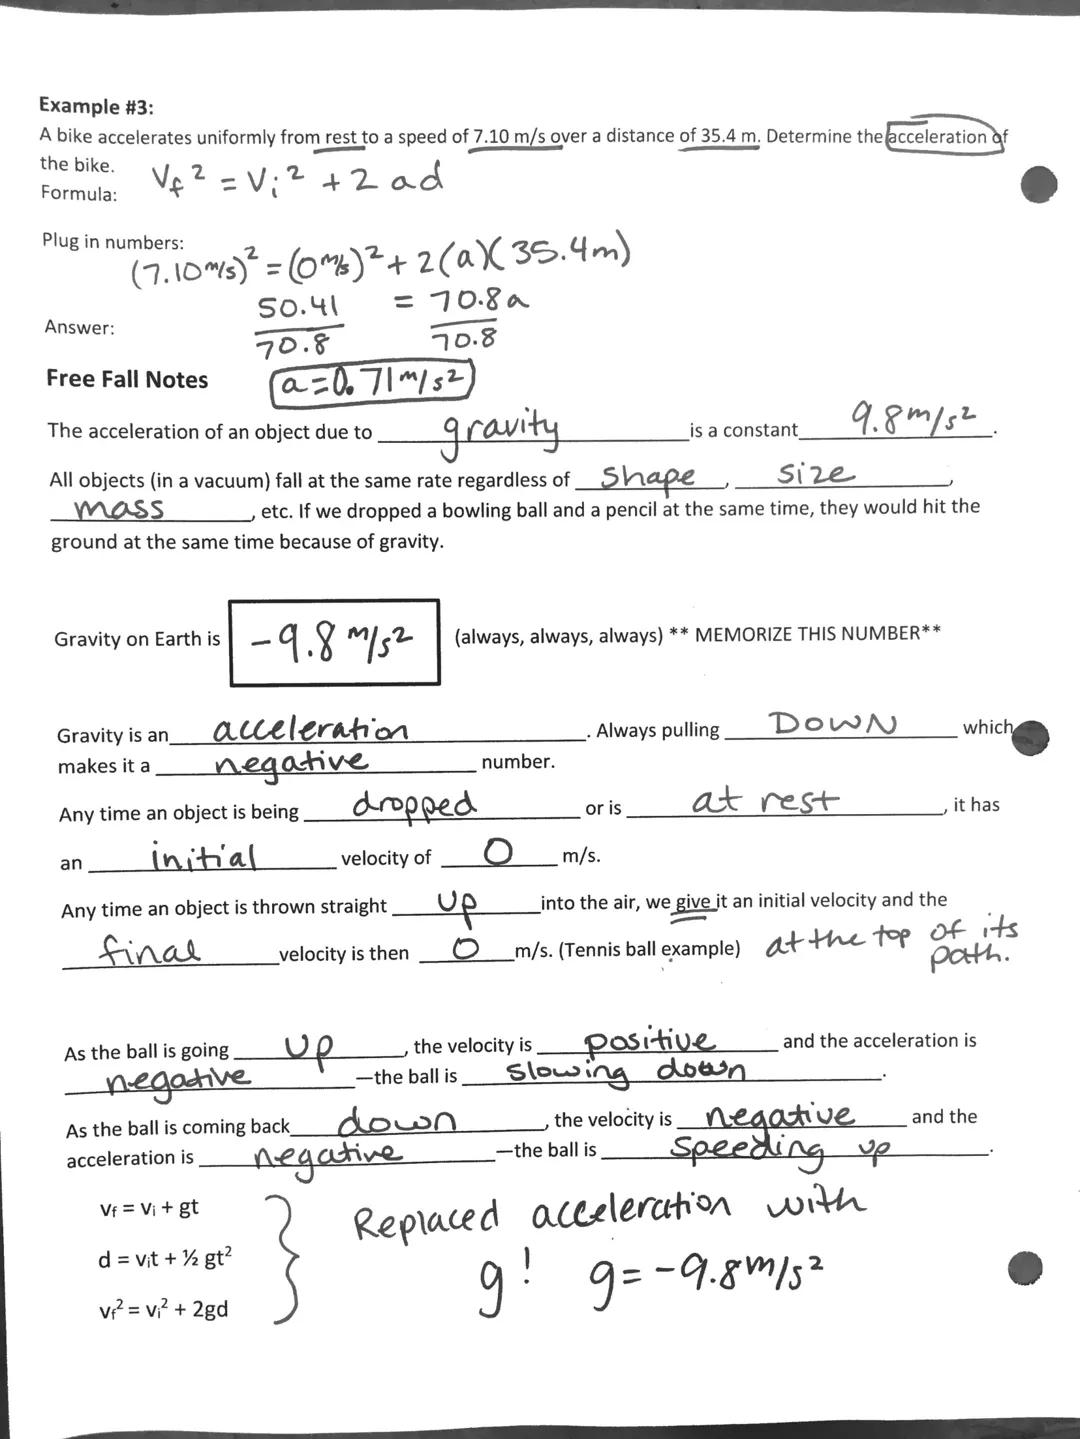 Example #3:
A bike accelerates uniformly from rest to a speed of 7.10 m/s over a distance of 35.4 m. Determine the acceleration of
the bike.
Formula: Vf² = Vi² + 2ad
Plug in numbers:
(7.10 m/s)² = (0 m/s)² + 2(a)(35.4m)
50.41 = 70.8a
Answer:
70.8 70.8
Free Fall Notes a=0.71 m/s²
The acceleration of an object due to gravity is a constant 9.8m/s².
All objects (in a vacuum) fall at the same rate regardless of shape, size,
mass, etc. If we dropped a bowling ball and a pencil at the same time, they would hit the
ground at the same time because of gravity.
Gravity on Earth is -9.8 m/s² (always, always, always) ** MEMORIZE THIS NUMBER**
Gravity is an acceleration. Always pulling DOWN which
makes it a negative number.
Any time an object is being dropped or is at rest, it has
an initial velocity of 0 m/s.
Any time an object is thrown straight up into the air, we give it an initial velocity and the
final velocity is then 0 m/s. (Tennis ball example) at the top of its
path.
As the ball is going up, the velocity is positive and the acceleration is
negative —the ball is slowing down.
As the ball is coming back down, the velocity is negative and the
acceleration is negative —the ball is speeding up.
vf = vi + gt
d = vit + ½ gt²
vf² = vi² + 2gd
Replaced acceleration with
g! g = -9.8m/s²